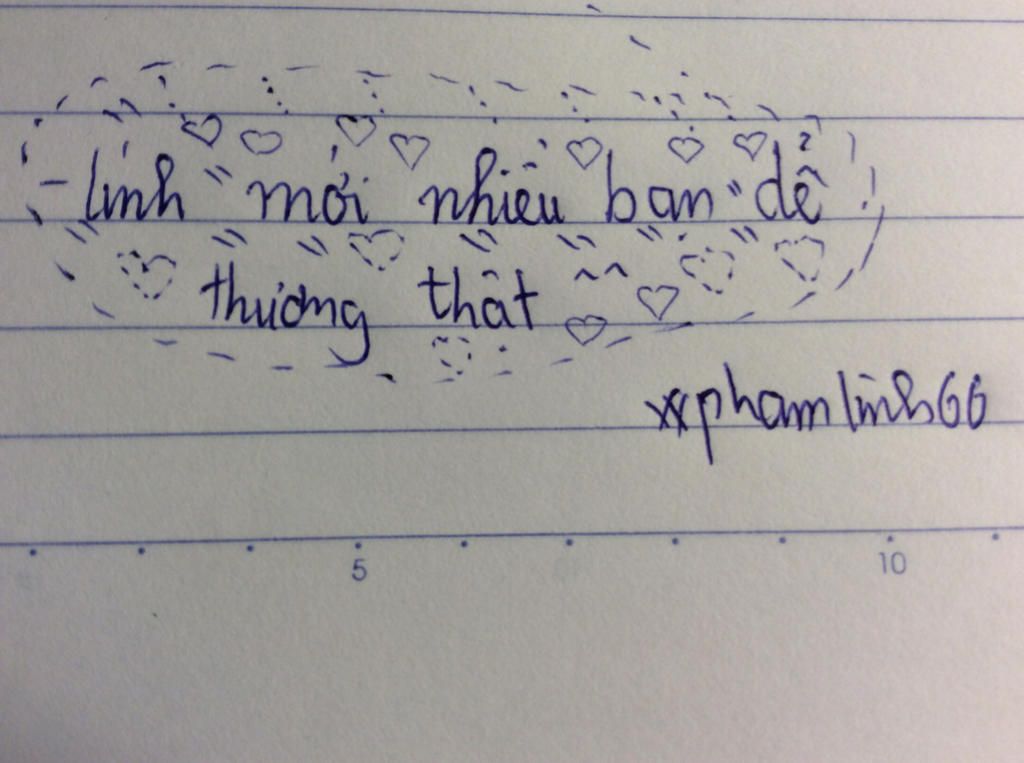 - linh mới nhiều bạn dể
thương thật ^^
xxphamlinh66
5 10